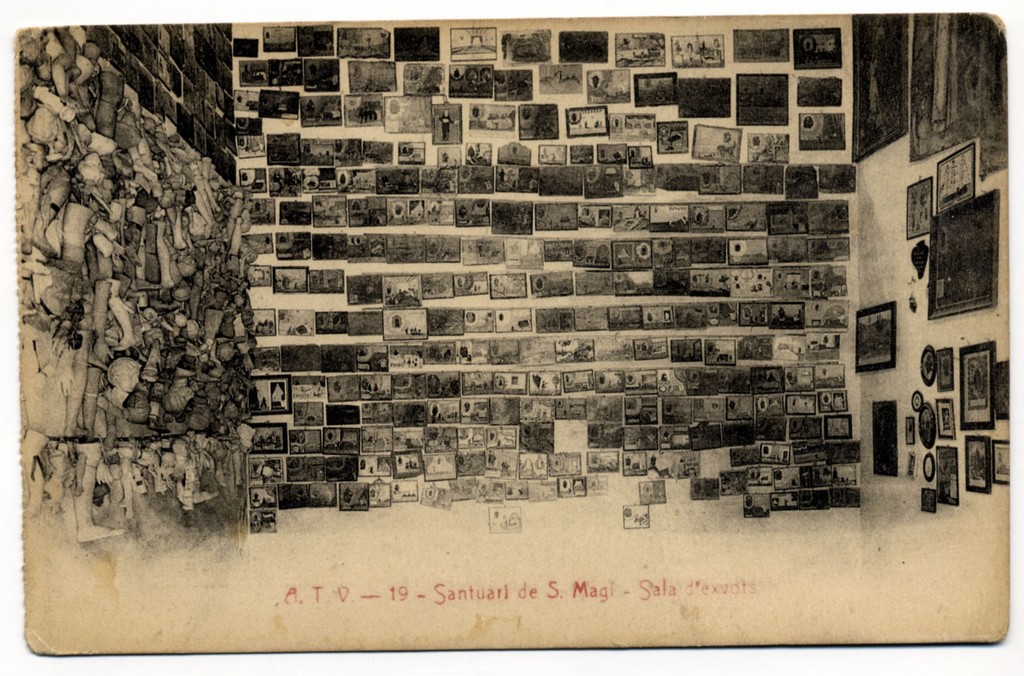 A. T. V. — 19 - Santuari de S. Magí - Sala d'exvots